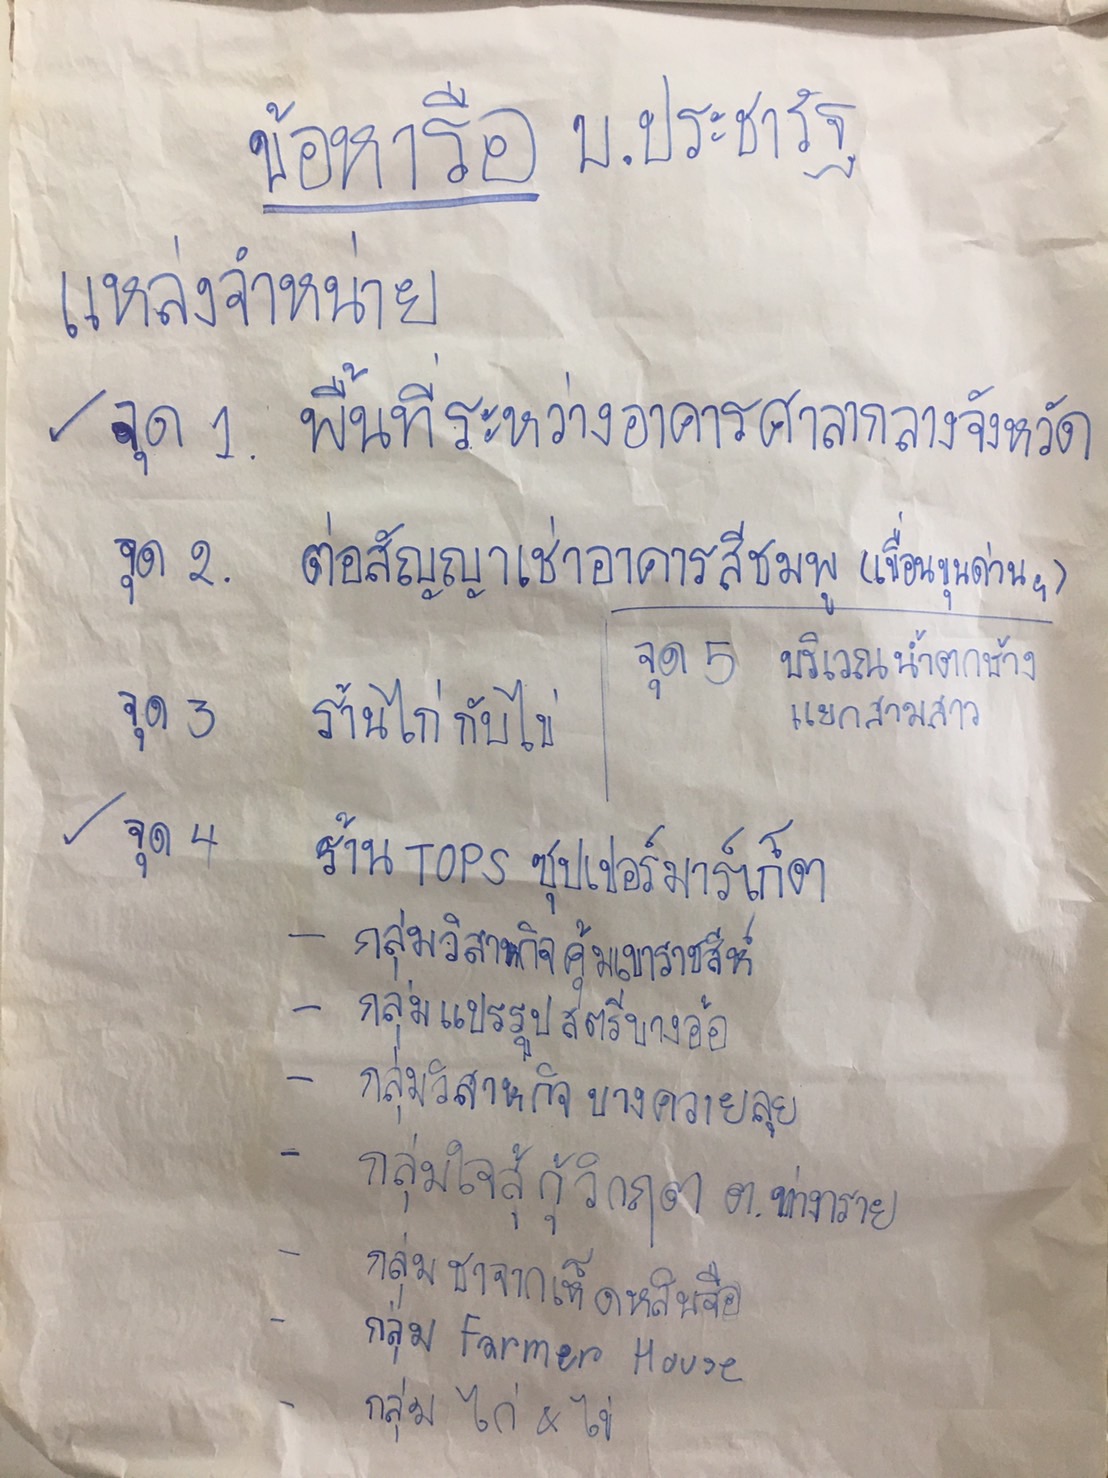 ข้อหารือ บ.ประชารัฐ
แหล่งจำหน่าย
✓ จุด 1. พื้นที่ระหว่างอาคารศาลากลางจังหวัด
จุด 2. ต่อสัญญาเช่าอาคารสีชมพู (เขื่อนขุนด่านฯ)
จุด 3 ร้านไก่กับไข่
จุด 5 บริเวณน้ำตกช้าง
แยกสามสาว
✓ จุด 4 ร้าน TOPS ซุปเปอร์มาร์เก็ต
- กลุ่มวิสาหกิจคุ้มเขาราชสีห์
- กลุ่มแปรรูปสตรีบางอ้อ
- กลุ่มวิสาหกิจ บางควายลุย
- กลุ่มใจสู้ กู้วิกฤต ต.ท่าทราย
- กลุ่มชาจากเห็ดหลินจือ
- กลุ่ม Farmer House
- กลุ่ม ไก่ & ไข่